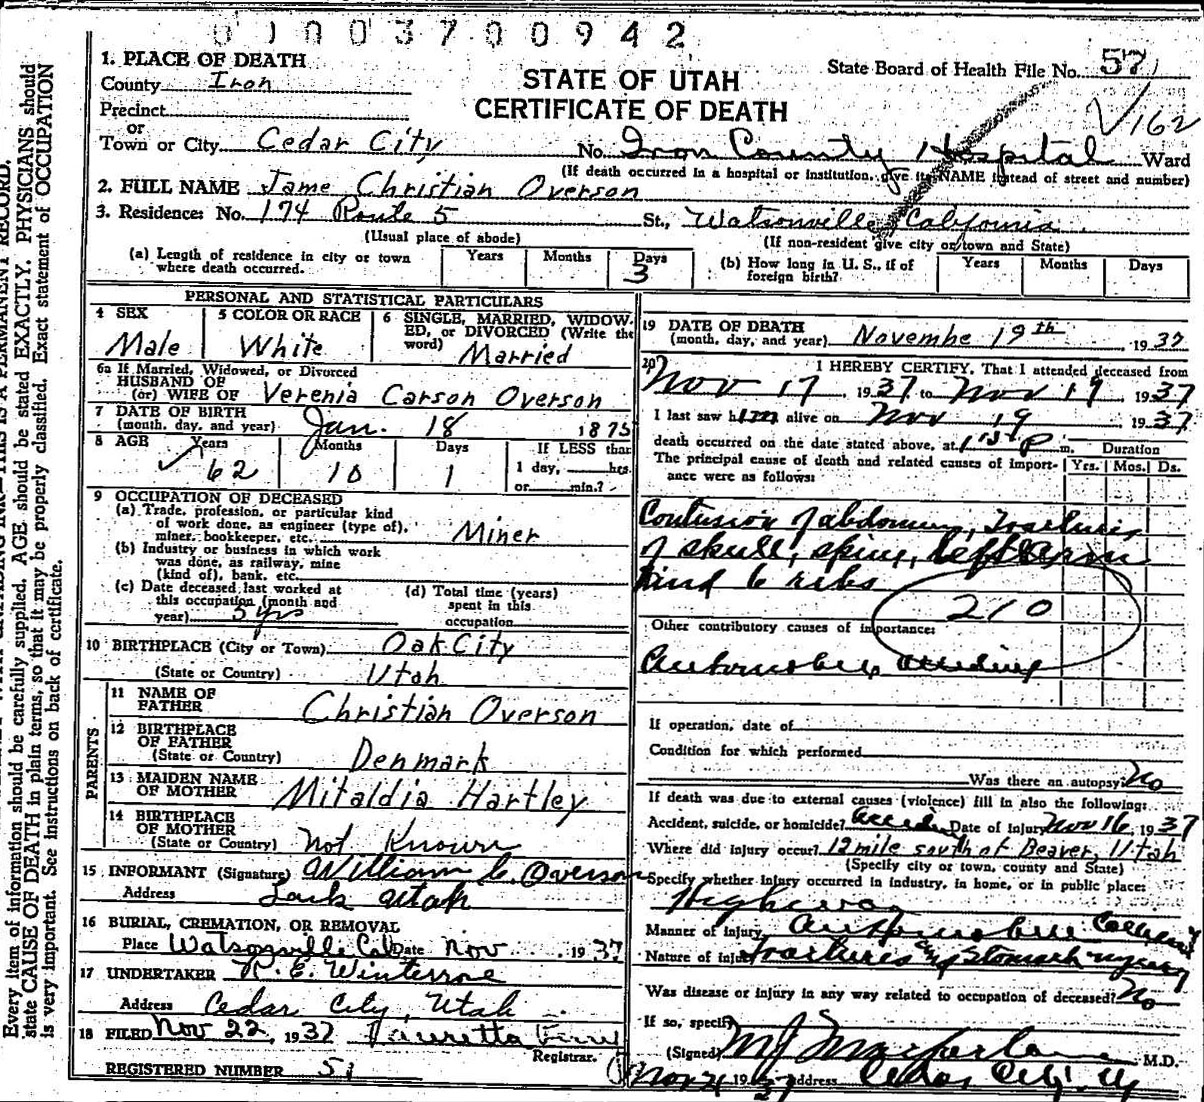 0100370 0942
1. PLACE OF DEATH
County Iron
Precinct
or
Town or City Cedar City
STATE OF UTAH
CERTIFICATE OF DEATH
State Board of Health File No. 57
162
No. Iron County Hospital Ward
(If death occurred in a hospital or institution, give its NAME instead of street and number)
2. FULL NAME Jame Christian Overson
3. Residence: No. 174 Route 5 St., Watsonville, California.
(Usual place of abode)
(If non-resident give city or town and State)
(a) Length of residence in city or town where death occurred.
Years Months Days
3
(b) How long in U. S., if of foreign birth?
Years Months Days
PERSONAL AND STATISTICAL PARTICULARS
4 SEX
Male
5 COLOR OR RACE
White
6 SINGLE, MARRIED, WIDOWED, or DIVORCED (Write the word)
Married
6a If Married, Widowed, or Divorced
HUSBAND OF
(or) WIFE OF Verenia Carson Overson
7 DATE OF BIRTH
(month, day, and year) Jan. 18 1875
8 AGE Years Months Days If LESS than
62 10 1 1 day, hrs.
or min.?
9 OCCUPATION OF DECEASED
(a) Trade, profession, or particular kind
of work done, as engineer (type of),
miner, bookkeeper, etc. Miner
(b) Industry or business in which work
was done, as railway, mine
(kind of), bank, etc.
(c) Date deceased last worked at
this occupation (month and
year) 5 yrs
(d) Total time (years)
spent in this
occupation
10 BIRTHPLACE (City or Town) Oak City
(State or Country) Utah
PARENTS
11 NAME OF
FATHER Christian Overson
12 BIRTHPLACE
OF FATHER
(State or Country) Denmark
13 MAIDEN NAME
OF MOTHER Mitaldia Hartley
14 BIRTHPLACE
OF MOTHER
(State or Country) Not Known
15 INFORMANT (Signature) William C. Overson
Address Utah
16 BURIAL, CREMATION, OR REMOVAL
Place Watsonville Cal Date Nov 1937
17 UNDERTAKER R. E. Winterrose
Address Cedar City, Utah
18 FILED Nov 22, 1937
Registrar.
REGISTERED NUMBER 51
19 DATE OF DEATH
(month, day, and year) Novembe 19th 1937
20 I HEREBY CERTIFY, That I attended deceased from
Nov 17, 1937 to Nov 19 1937
I last saw him alive on Nov 19 1937
death occurred on the date stated above, at P m. Duration
The principal cause of death and related causes of importance were as follows:
Yrs. Mos. Ds.
Contusion of abdomen, fractures
of skull, spine, left arm
and 6 ribs
210
Other contributory causes of importance:
Automobile accident
If operation, date of
Condition for which performed
Was there an autopsy? No
If death was due to external causes (violence) fill in also the following:
Accident, suicide, or homicide? Date of injury Nov 16, 1937
Where did injury occur? 12 mile south of Beaver, Utah
(Specify city or town, county and State)
Specify whether injury occurred in industry, in home, or in public place:
Highway
Manner of Injury Automobile
Nature of injury Fractures and Stomach injury
Was disease or injury in any way related to occupation of deceased? No
If so, specify
(Signed) M J Macfarlane M.D.
Nov 21 1937 Address Cedar City, U
Every item of information should be carefully supplied. AGE should be stated EXACTLY. PHYSICIANS should
state CAUSE OF DEATH in plain terms, so that it may be properly classified. Exact statement of OCCUPATION
is very important. See instructions on back of certificate.